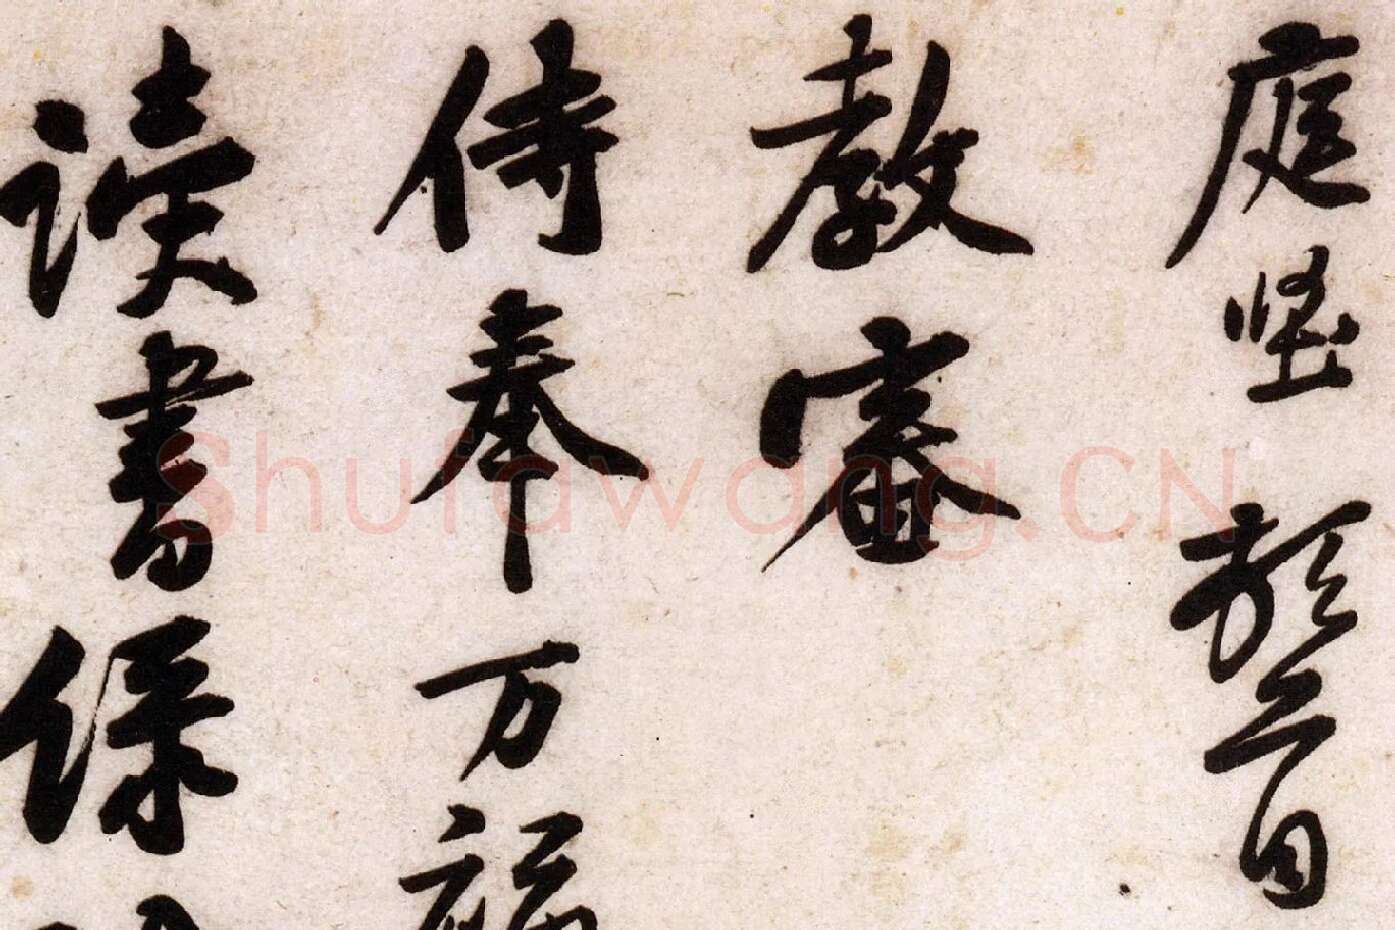 庭堅頓首
教審
侍奉万福
读書保
Shufawang.CN